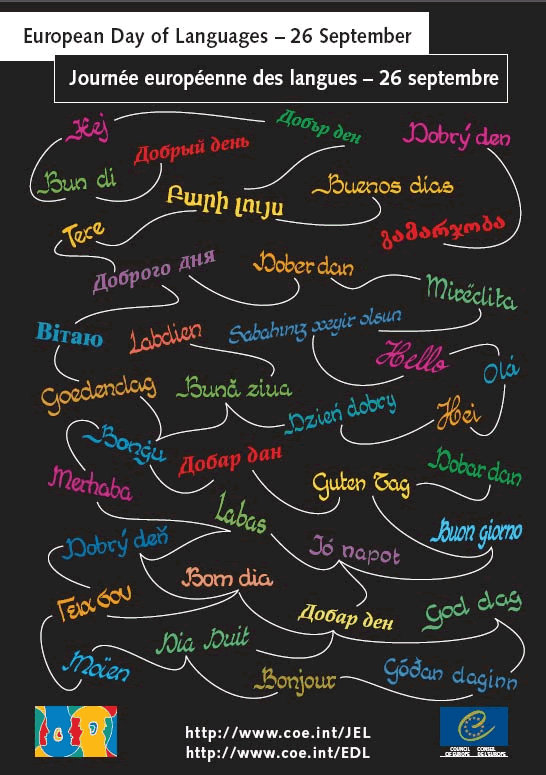 European Day of Languages – 26 September
Journée européenne des langues – 26 septembre
Hej
Добър ден
Dobrý den
Добрый день
Bun di
Բարի լույս
Buenos días
Tere
გამარჯობა
Доброго дня
Dober dan
Mirëdita
Вітаю
Labdien
Sabahınız xeyir olsun
Hello
Olá
Goedendag
Bună ziua
Dzień dobry
Hei
Bonġu
Добар дан
Merhaba
Guten Tag
Dobar dan
Labas
Dobrý deň
Jó napot
Buon giorno
Bom dia
Γεια σου
Добар ден
God dag
Dia Duit
Moïen
Bonjour
Góðan daginn
http://www.coe.int/JEL
http://www.coe.int/EDL
COUNCIL OF EUROPE
CONSEIL DE L'EUROPE